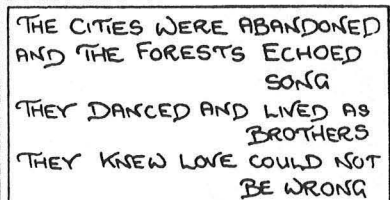 THE CITIES WERE ABANDONED
AND THE FORESTS ECHOED
SONG
THEY DANCED AND LIVED AS
BROTHERS
THEY KNEW LOVE COULD NOT
BE WRONG